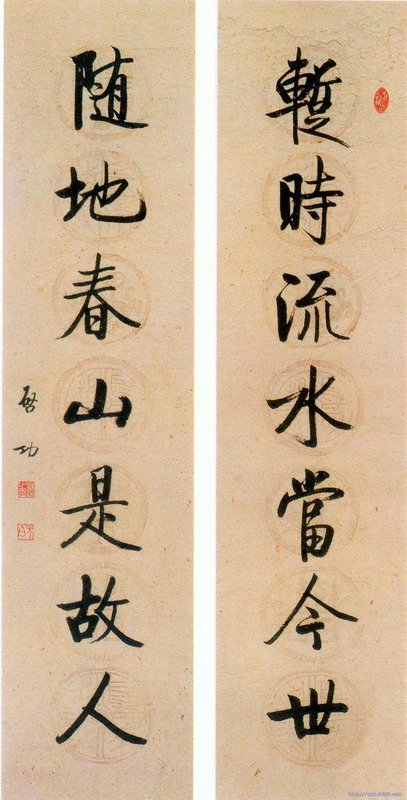 蹔時流水當今世
随地春山是故人
啓功